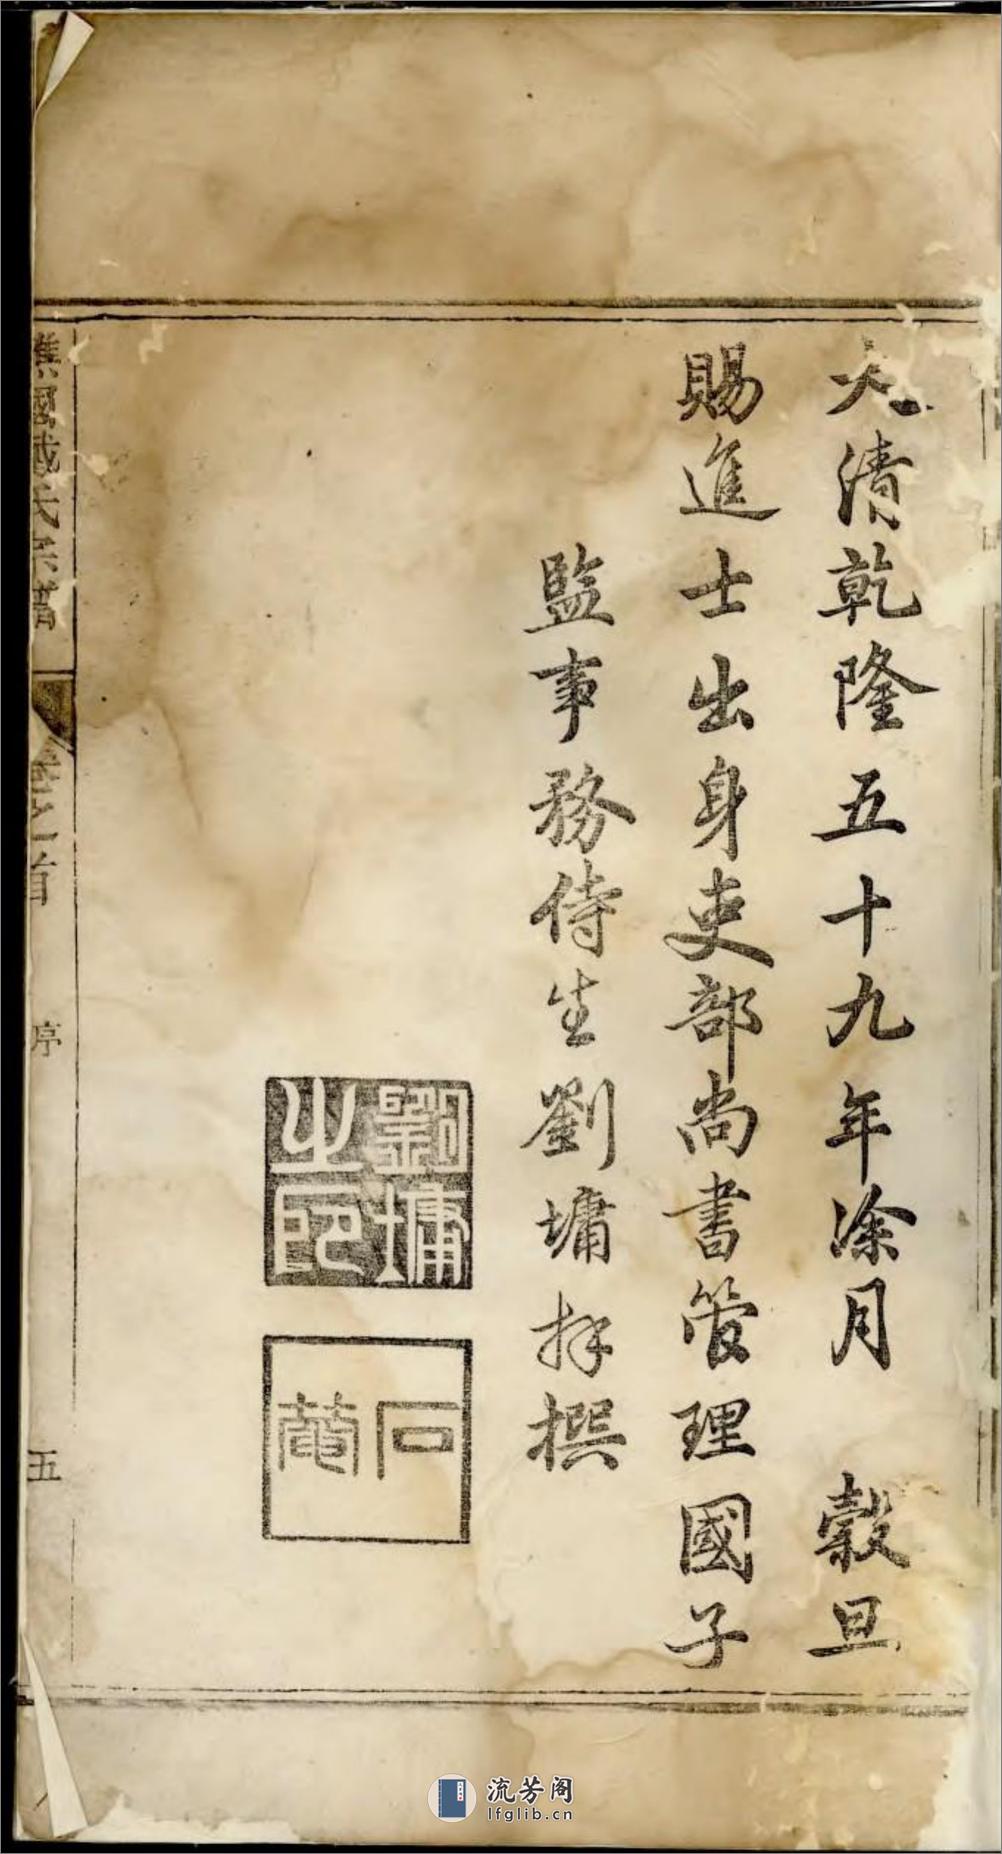 大清乾隆五十九年涂月 穀旦
賜進士出身吏部尚書管理國子
監事務侍生劉墉拜撰
劉墉之印
石菴
譙國戴氏宗譜
卷之首
序
五
流芳阁
lfglib.cn